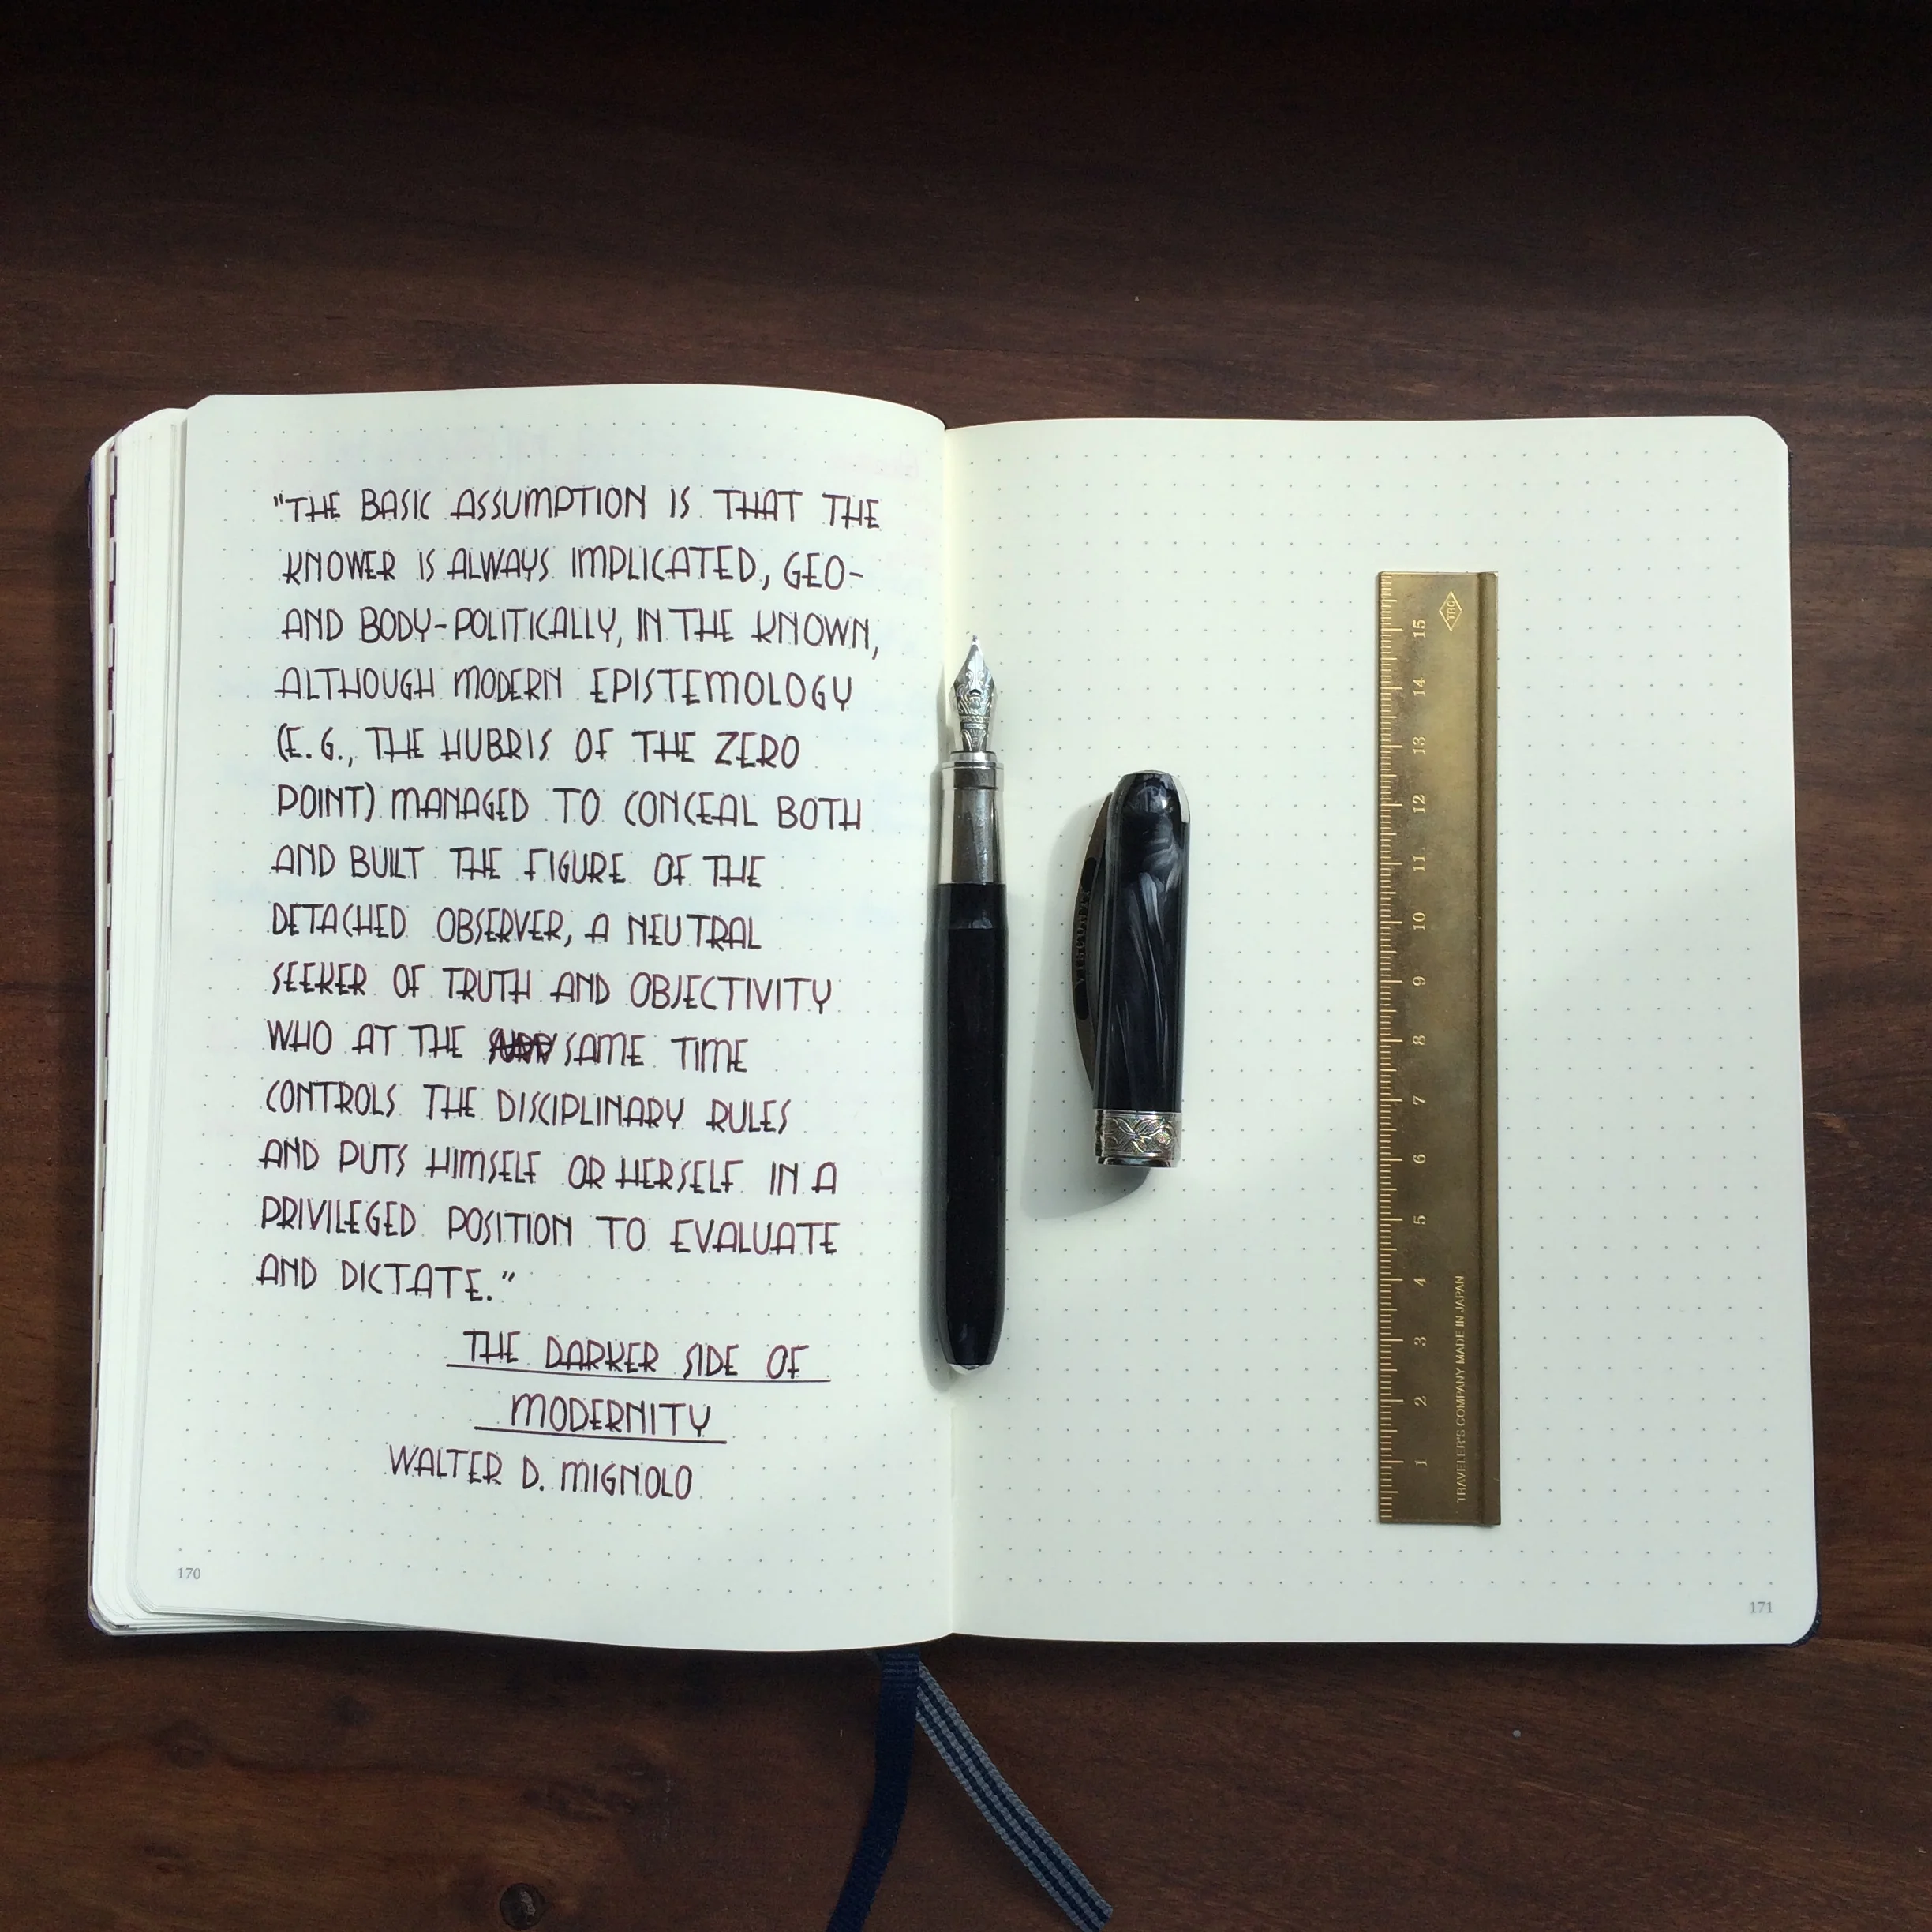 "THE BASIC ASSUMPTION IS THAT THE
KNOWER IS ALWAYS IMPLICATED, GEO-
AND BODY-POLITICALLY, IN THE KNOWN,
ALTHOUGH MODERN EPISTEMOLOGY
(E.G., THE HUBRIS OF THE ZERO
POINT) MANAGED TO CONCEAL BOTH
AND BUILT THE FIGURE OF THE
DETACHED OBSERVER, A NEUTRAL
SEEKER OF TRUTH AND OBJECTIVITY
WHO AT THE SAME TIME
CONTROLS THE DISCIPLINARY RULES
AND PUTS HIMSELF OR HERSELF IN A
PRIVILEGED POSITION TO EVALUATE
AND DICTATE."
THE DARKER SIDE OF
MODERNITY
WALTER D. MIGNOLO
170
VISCONTI
TRC
15
14
13
12
11
10
9
8
7
6
5
4
3
2
1
TRAVELER'S COMPANY MADE IN JAPAN
171